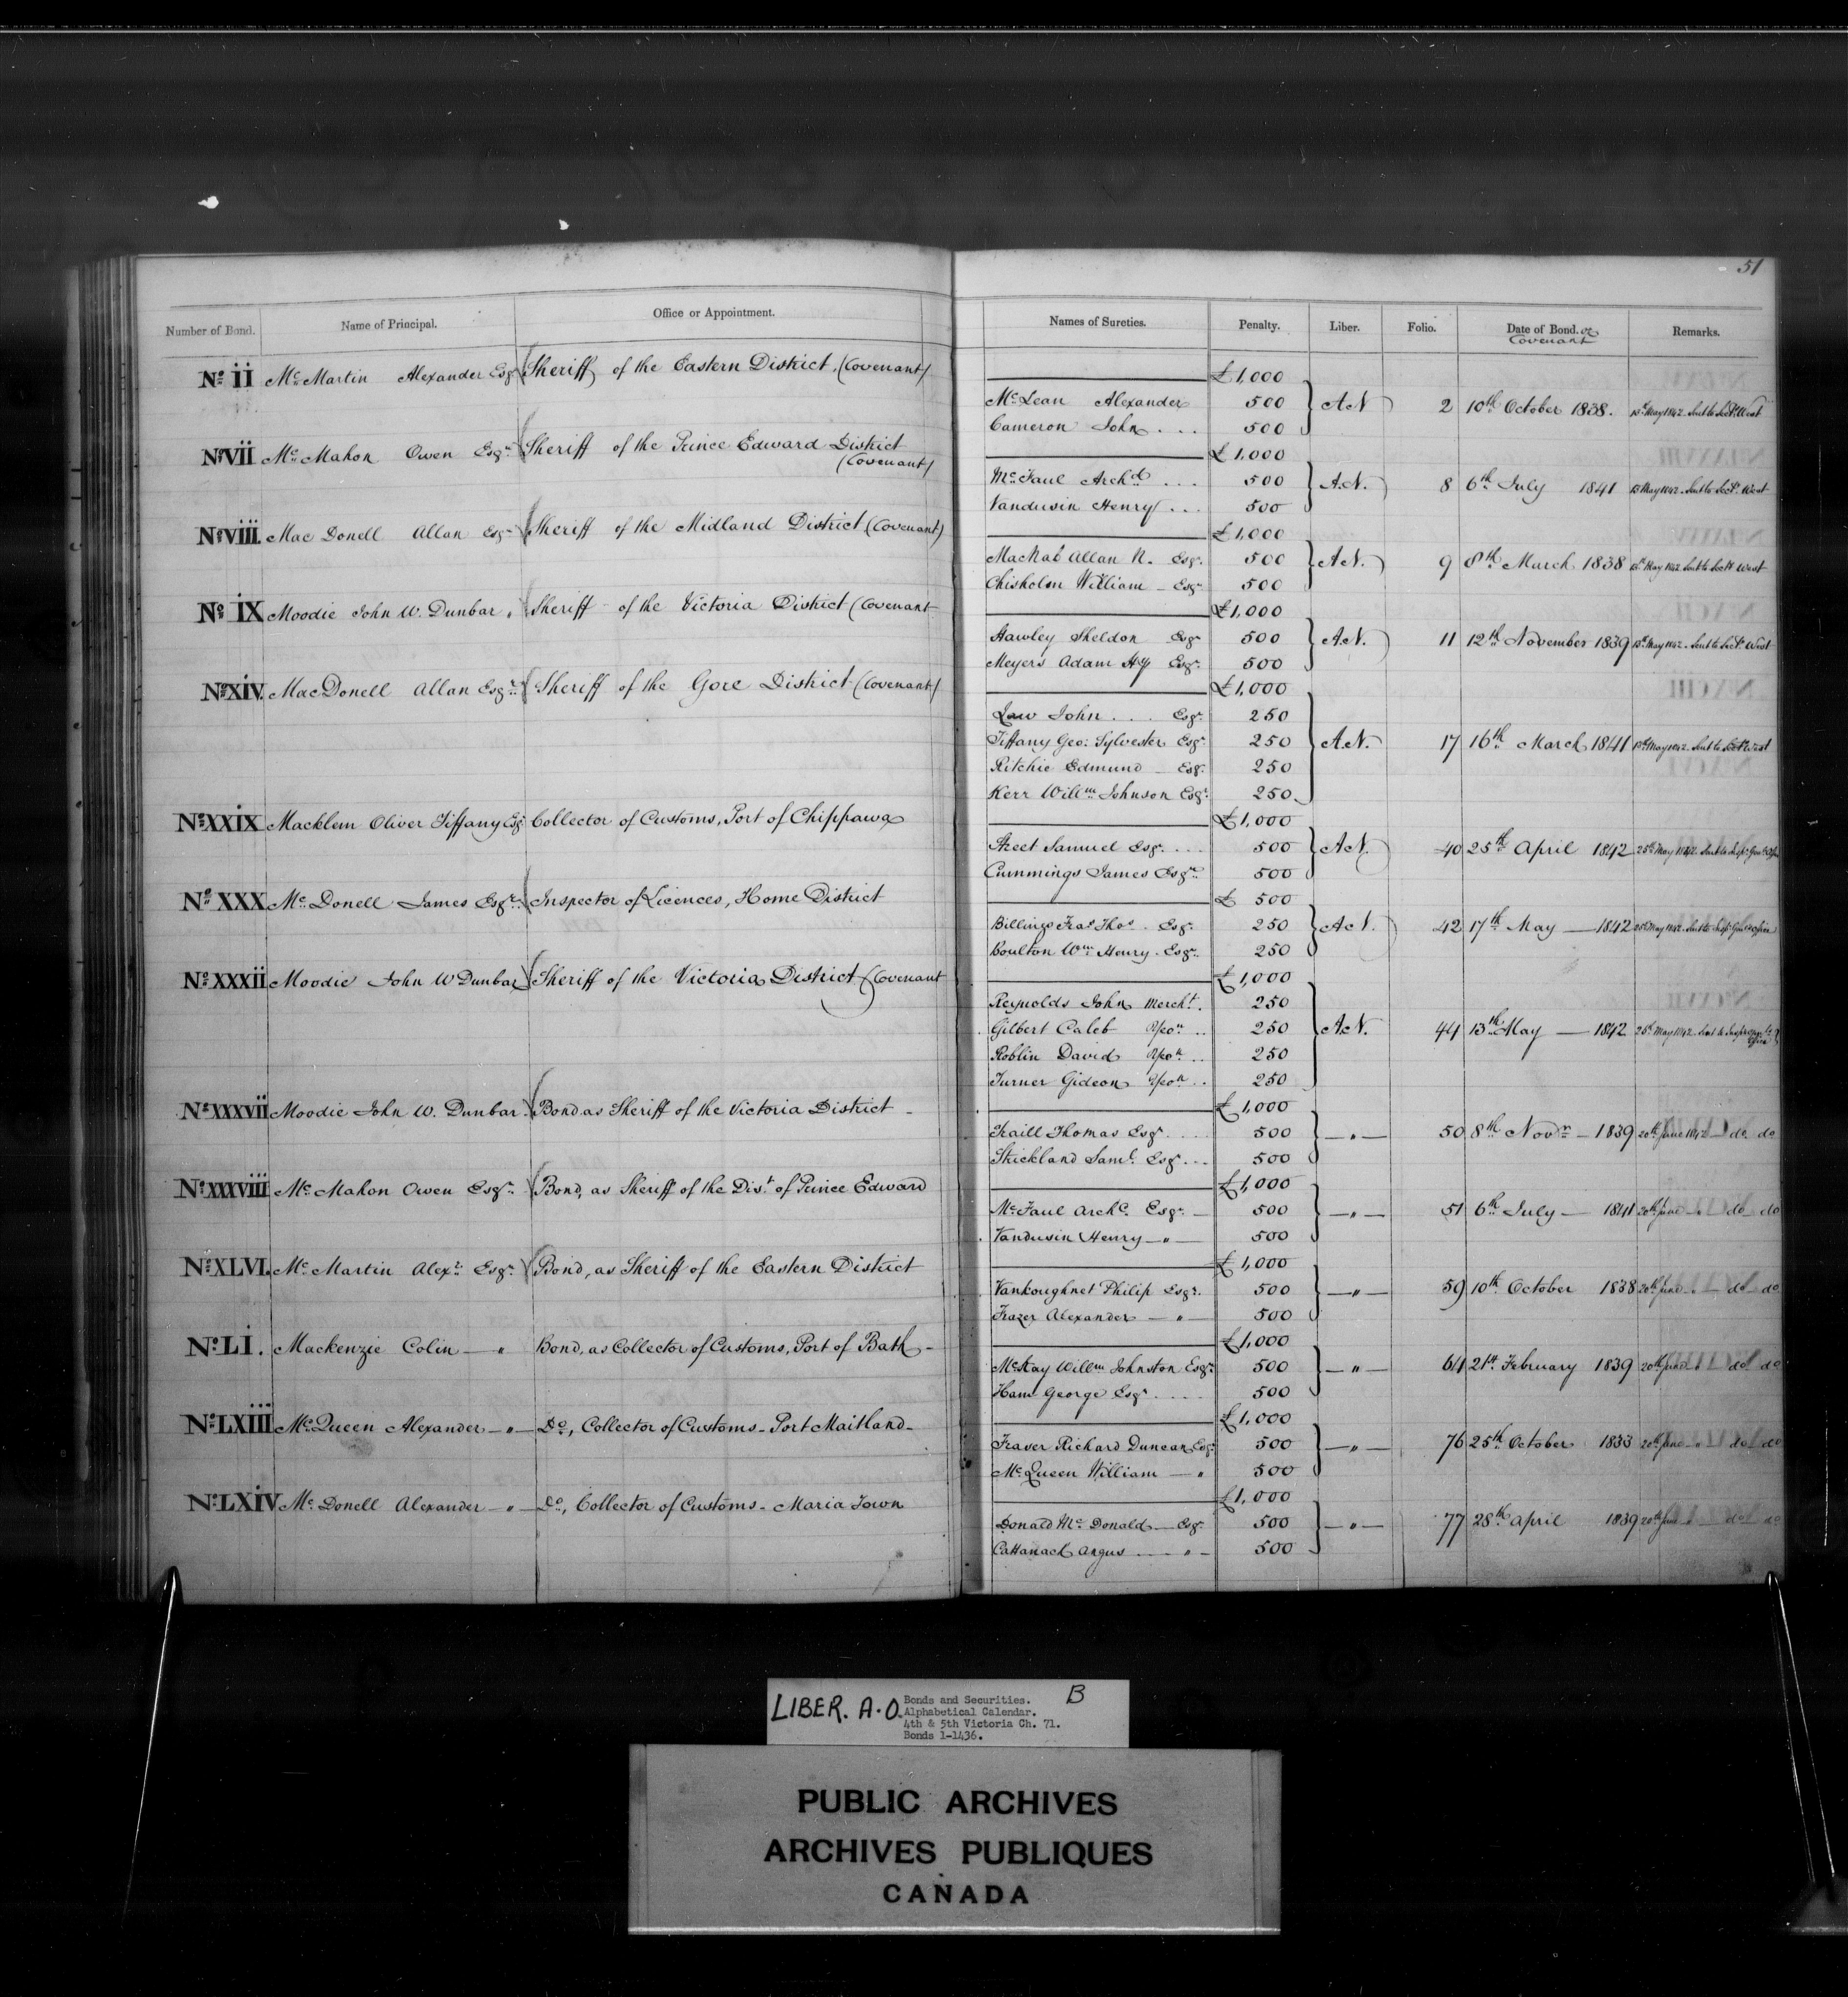 51
Number of Bond. Name of Principal. Office or Appointment. Names of Sureties. Penalty. Liber. Folio. Date of Bond. or Covenant Remarks.
No. II Mc Martin Alexander Esqr. Sheriff of the Eastern District. (Covenant) £1,000
Mc Lean Alexander 500 A.N 2 10th October 1838. 13th May 1842. Sent to Secy. West
Cameron John . . . 500
No. VII Mc Mahon Owen Esqr. Sheriff of the Prince Edward District (Covenant) £1,000
Mc Faul Archd. . . . 500 A.N. 8 6th July 1841 13 May 1842. Sent to Secy. West
Vandusin Henry . . . 500
No. VIII. Mac Donell Allan Esqr. Sheriff of the Midland District (Covenant) £1,000
MacNab Allan N. Esqr. 500 A.N. 9 8th March 1838 13th May 1842 Sent to Secy. West
Chisholm William - Esqr. 500
No. IX Moodie John W. Dunbar " Sheriff - of the Victoria District (Covenant £1,000
Hawley Sheldon Esqr. 500 A.N. 11 12th November 1839 13th May 1842. Sent to Secy. West
Meyers Adam Hy Esqr. 500
No. XIV. MacDonell Allan Esqr. Sheriff of the Gore District (Covenant) £1,000
Law John . . . Esqr. 250
Tiffany Geo: Sylvester Esqr. 250 A.N. 17 16th March 1841 13th May 1842. Sent to Secy. West
Ritchie Edmund - Esqr. 250
Kerr Willm. Johnson Esqr. 250
No. XXIX Macklem Oliver Tiffany Esqr. Collector of Customs, Port of Chippawa £1,000
Street Samuel Esqr. . . . 500 A.N. 40 25th April 1842 25th May 1842. Sent to Insp. Genl.
Cummings James Esqr. 500
No. XXX Mc Donell James Esqr. Inspector of Licences, Home District £ 500
Billings Fras. Thos. Esqr. 250 A.N. 42 17th May — 1842 25th May 1842. Sent to Insp. Genl. Office
Boulton Wm. Henry. Esqr. 250
No. XXXII Moodie John W Dunbar Sheriff of the Victoria District (Covenant £1,000
Reynolds John Mercht. 250
Gilbert Caleb Yeon. . . 250 A.N. 44 13th May — 1842 25th May 1842. Sent to Office
Roblin David Yeon. . . 250
Turner Gideon Yeon. . . 250
No. XXXVII Moodie John W. Dunbar. Bond as Sheriff of the Victoria District - £1,000
Traill Thomas Esqr. . . . 500 — " — 50 8th Novr. — 1839 20th June 1842 do do
Strickland Saml. Esqr. . . . 500
No. XXXVIII Mc Mahon Owen Esqr. Bond, as Sheriff of the Dist. of Prince Edward £1,000
Mc Faul Archd. Esqr. — 500 — " — 51 6th July — 1841 20th June do do
Vandusin Henry — " — 500
No. XLVI. Mc Martin Alexr. Esqr. Bond, as Sheriff of the Eastern District £1,000
Vankoughnet Philip Esqr. 500 — " — 59 10th October 1838 20th June " do do
Frazer Alexander — " — 500
No. LI. Mackenzie Colin — " Bond, as Collector of Customs, Port of Bath - £1,000
McKay Willm. Johnston Esqr. 500 — " — 64 21st February 1839 20th June " do do
Ham George Esqr. . . . 500
No. LXIII Mc Queen Alexander — " — Do, Collector of Customs - Port Maitland - £1,000
Fraser Richard Duncan Esqr. 500 — " — 76 25th October 1833 20th June " do do
Mc Queen William — " 500
No. LXIV Mc Donell Alexander — " — Do, Collector of Customs - Maria Town £1,000
Donald Mc Donald — Esqr. 500 — " — 77 28th April 1839 20th June " do do
Cattanach Angus — " — 500
LIBER. A.O. Bonds and Securities. B
Alphabetical Calendar.
4th & 5th Victoria Ch. 71.
Bonds 1-1436.
PUBLIC ARCHIVES
ARCHIVES PUBLIQUES
CANADA